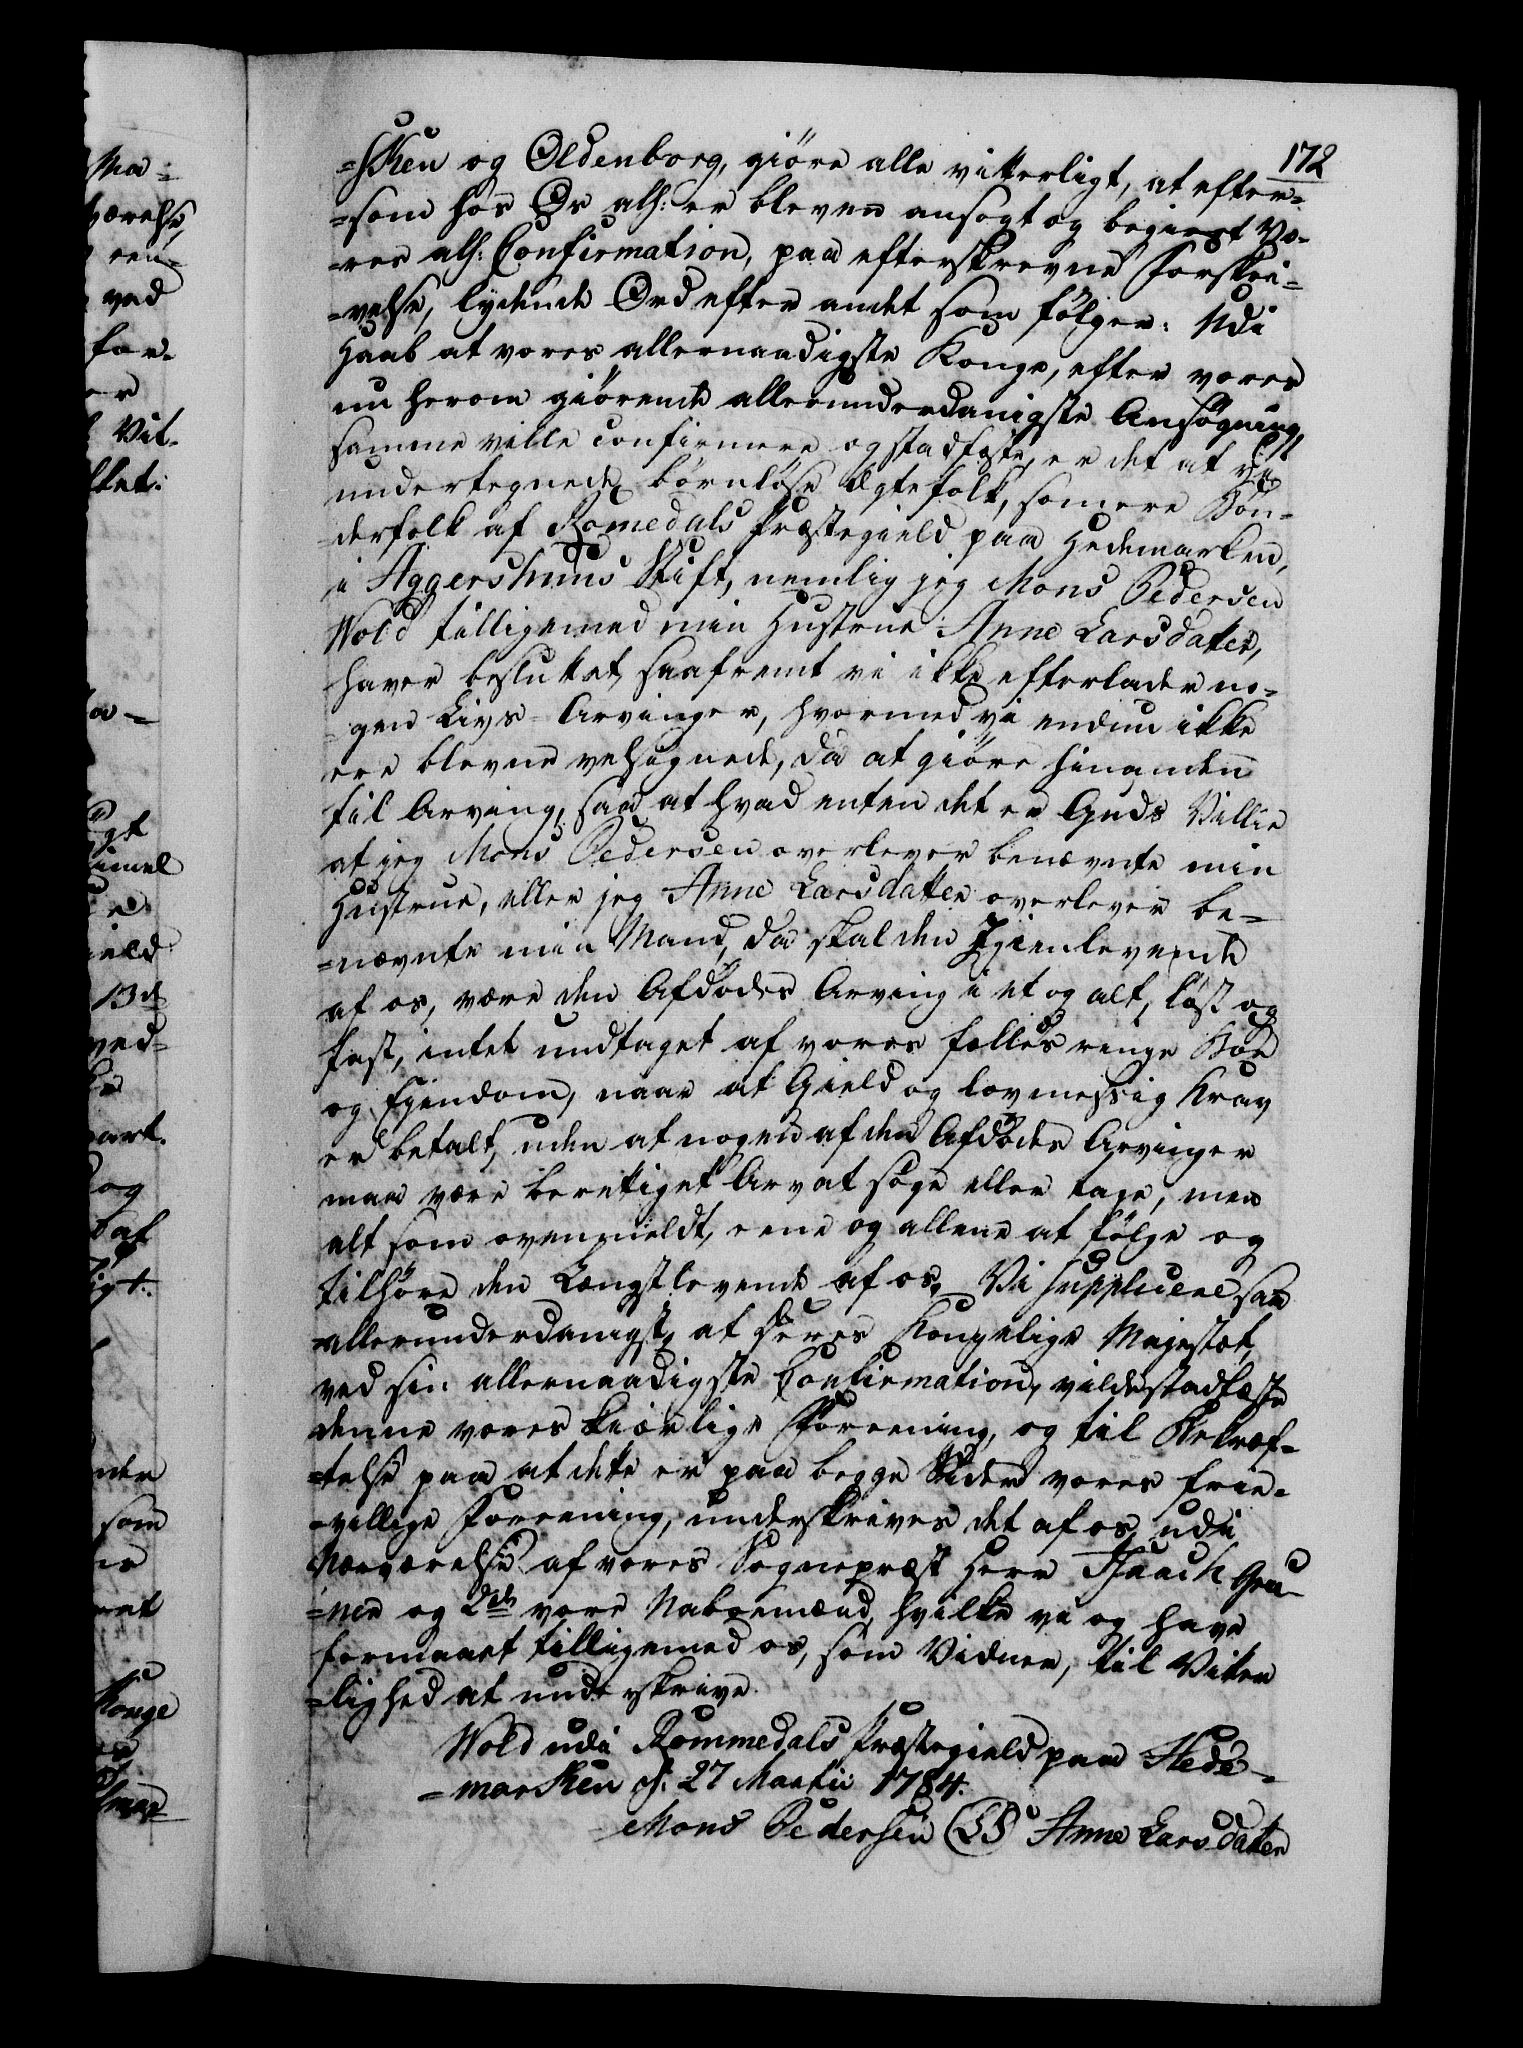 172
=sken og Oldenborg, giöre alle vitterligt, at efter=
=som hos Os alh: er bleven ansøgt og begiert Vo=
=res alh: Confirmation, paa efterskrevne Forskri=
=velse, lydende Ord efter andet som følger: Udi
Haab at vores allernaadigste Konge, efter vores
nu herom giörende allerunderdanigste Ansögning,
samme ville confirmere og stadfæste, er det at vi
undertegnede börnlöse Ægtefolk, som ere Bön=
=derfolk af Romedals Præstegield paa Hedemarken,
i Aggershuus Stift, nemlig jeg Mons Pedersen
Wold tilligemed min Hustrue Anne Larsdatter,
haver besluttet, saafremt vi ikke efterlader no=
=gen Livs-Arvinger, hvormed vi endnu ikke
ere blevne velsignede, da at giöre hinanden
til Arving, saa at hvad enten det er Guds Villie
at jeg Mons Pedersen overlever benævnte min
Hustrue, eller jeg Anne Larsdatter overlever be=
=nævnte min Mand, da skal den Igienlevende
af os, være den Afdödes Arving i et og alt, löst og
fast, intet undtaget af vores fælles ringe Boe
og Ejendom, naar at Gield og lovmessig Krav
er betalt, uden at nogen af den Afdödes Arvinger
maa være berettiget Arv at söge eller tage, men
alt som ovenmeldt, eene og allene at følge og
tilhöre den Længstlevende af os. Vi supplicere saa
allerunderdanigst, at Deres Kongelige Majestæt,
ved sin allernaadigste Confirmation, vilde stadfæste
denne vores kiærlige Foreening, og til Bekræf=
=telse paa at dette er paa begge Sider vores frie=
=villige Foreening, underskrives det af os udi
Nærværelse af vores Sognepræst Herr Isaach Gru=
=ner og 2de vore Naboemænd, hvilke vi og have
formaaet tilligemed os, som Vidner, til Vitter
=lighed at underskrive.
Wold udi Rommedals Præstegield paa Hede=
=marken d: 27 Martii 1784.
Mons Pedersen (LS) Anne Larsdatter